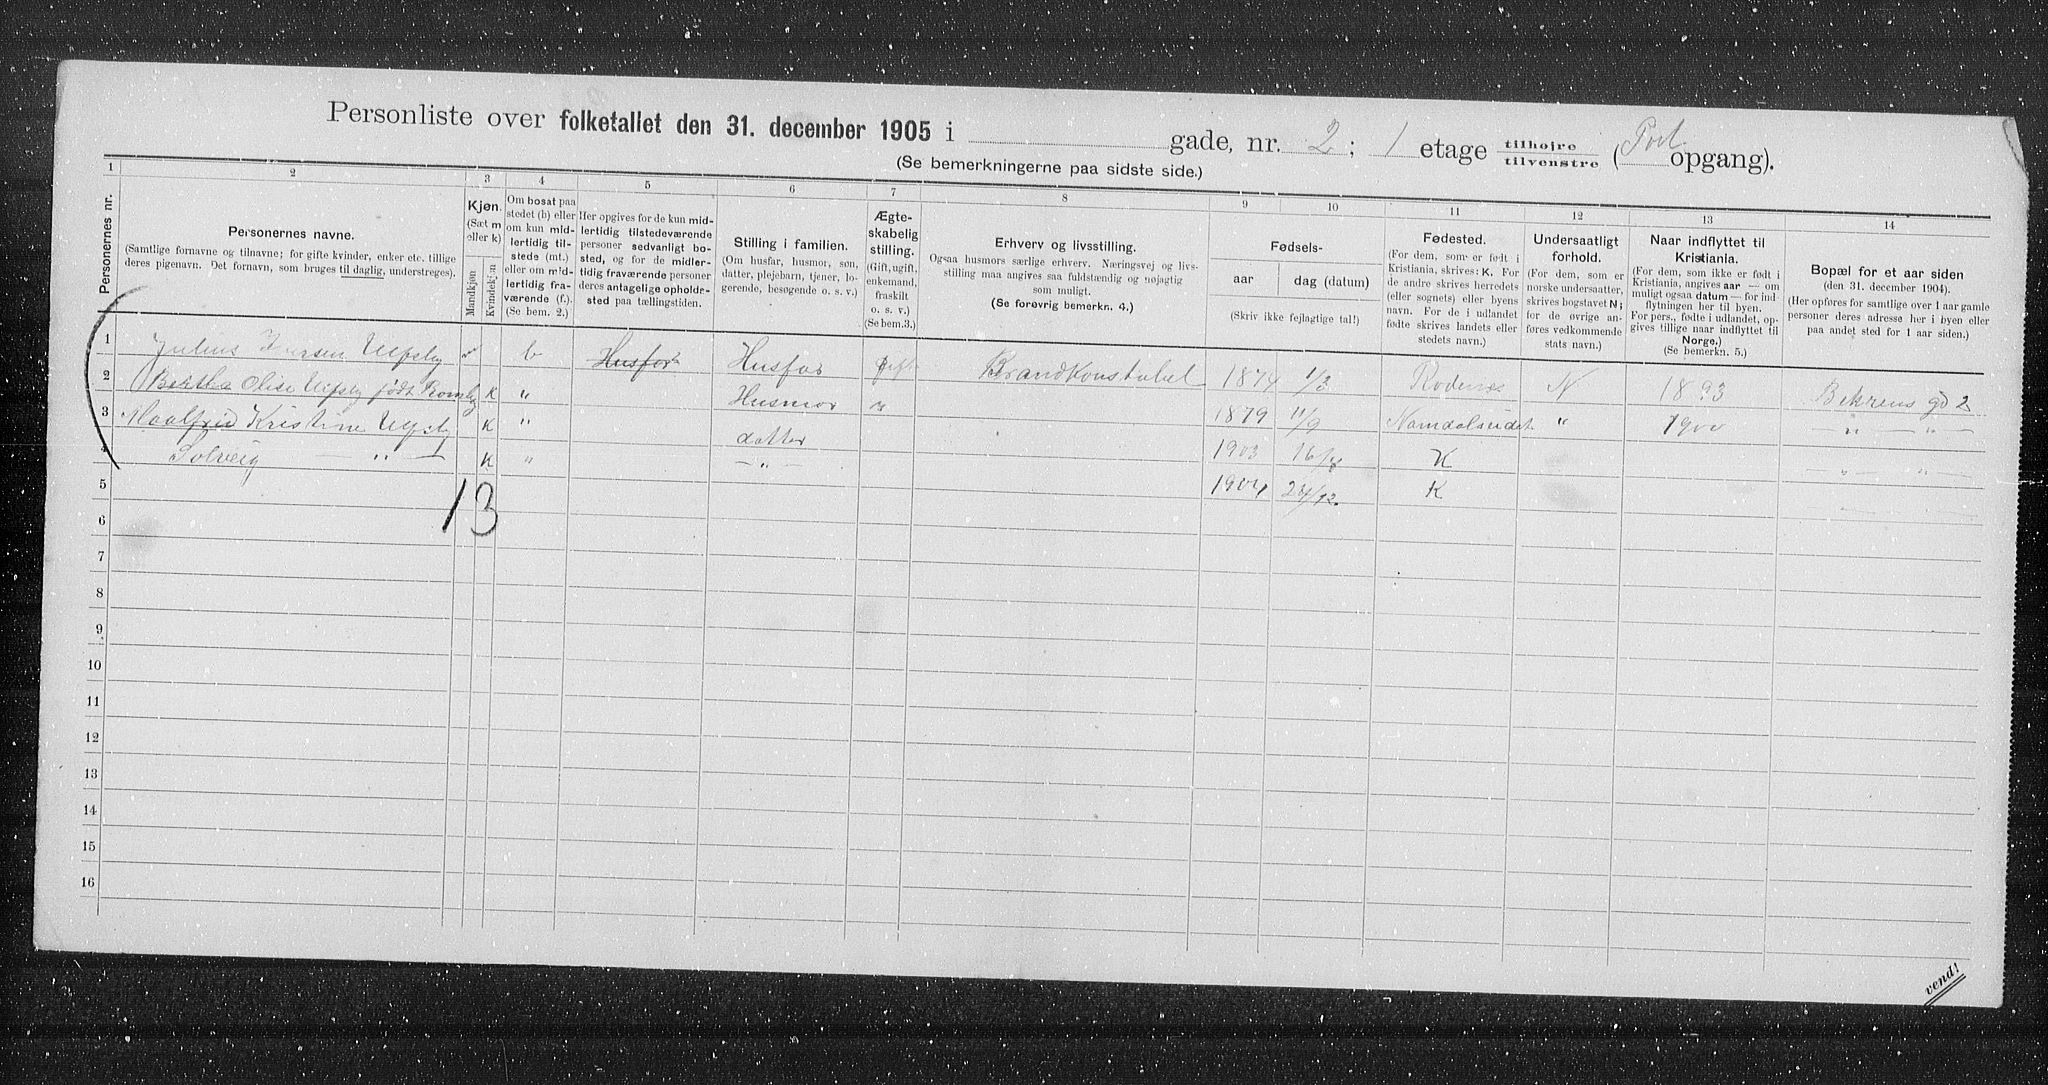 Personliste over folketallet den 31. december 1905 i gade, nr. 2 ; 1 etage tilhøjre tilvenstre (Port opgang).
(Se bemerkningerne paa sidste side.)
1 2 3 4 5 6 7 8 9 10 11 12 13 14
Personernes nr.
Personernes navne.
(Samtlige fornavne og tilnavne; for gifte kvinder, enker etc. tillige
deres pigenavn. Det fornavn, som bruges til daglig, understreges).
Kjøn.
(Sæt m
eller k)
Mandkjøn
Kvindekjøn
Om bosat paa
stedet (b) eller
om kun mid-
lertidig til-
stede (mt.)
eller om mid-
lertidig fra-
værende (f.).
(Se bem. 2.)
Her opgives for de kun mid-
lertidig tilstedeværende
personer sedvanligt bo-
sted, og for de midler-
tidig fraværende personer
deres antagelige opholdr-
sted paa tællingstiden.
Stilling i familien.
(Om husfar, husmor, søn,
datter, plejebarn, tjener, lo-
gerende, besøgende o. s. v.)
Ægte-
skabelig
stilling.
(Gift, ugift,
enkemand,
fraskilt
o. s. v.)
(Se bem.3.)
Erhverv og livsstilling.
Ogsaa husmors særlige erhverv. Næringsvej og livs-
stilling maa angives saa fuldstændig og nøjagtig
som muligt.
(Se forøvrig bemerkn. 4.)
Fødsels-
aar dag (datum)
(Skriv ikke fejlagtige tal!)
Fødested.
(For dem, som er født i
Kristiania, skrives: K. For
de andre skrives herredets
(eller sognets) eller byens
navn. For de i udlandet
fødte skrives landets eller
stedets navn.)
Undersaatligt
forhold.
(For dem, som er
norske undersaatter,
skrives bogstavet N;
for de øvrige an-
føres vedkommende
stats navn.)
Naar indflyttet til
Kristiania.
(For dem, som ikke er født i
Kristiania, angives aar — om
muligt ogsaa datum — for ind-
flytningen her til byen.
For pers., fødte i udlandet, op-
gives tillige naar indflyttet til
Norge.)
(Se bemerkn. 5.)
Bopæl for et aar siden
(den 31. december 1904).
(Her opføres for samtlige over 1 aar gamle
personer deres adresse her i byen eller
paa andet sted for 1 aar siden.)
1 Julius Ulfsby m b Husfar Husfar gift Brandkonstabel 1874 1/3 Rodenes N 1893 Bekrens gd 2
2 Bertha Olise Ulfsby født K " Husmor " 1879 11/9 Namdalseidet " 1900 — " — " —
3 Maalfrid Kristine Ulfsby K " datter 1903 16/8 K " — "
4 Solveig — " — K " — " — 1904 24/12 K
13
5
6
7
8
9
10
11
12
13
14
15
16
vend!